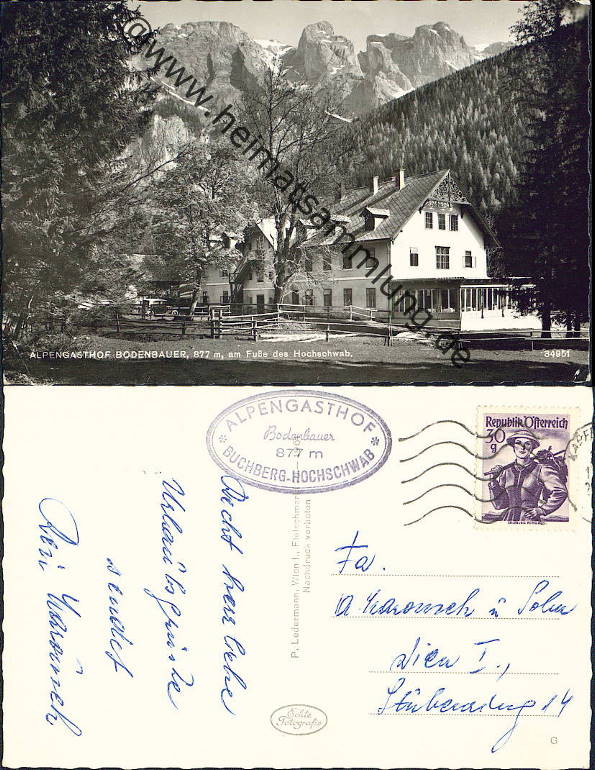 @www.heimatsammlung.de
ALPENGASTHOF BODENBAUER, 877 m, am Fuße des Hochschwab.
34951
ALPENGASTHOF
Bodenbauer
877 m
BUCHBERG-HOCHSCHWAB
Republik Österreich
30
g
Recht herzliche
Urlaubsgrüße
sendet
P. Ledermann, Wien I., Fleischmarkt
Nachdruck verboten
Fa.
u Sohn
Wien I.,
14
Echte
Fotografie
G